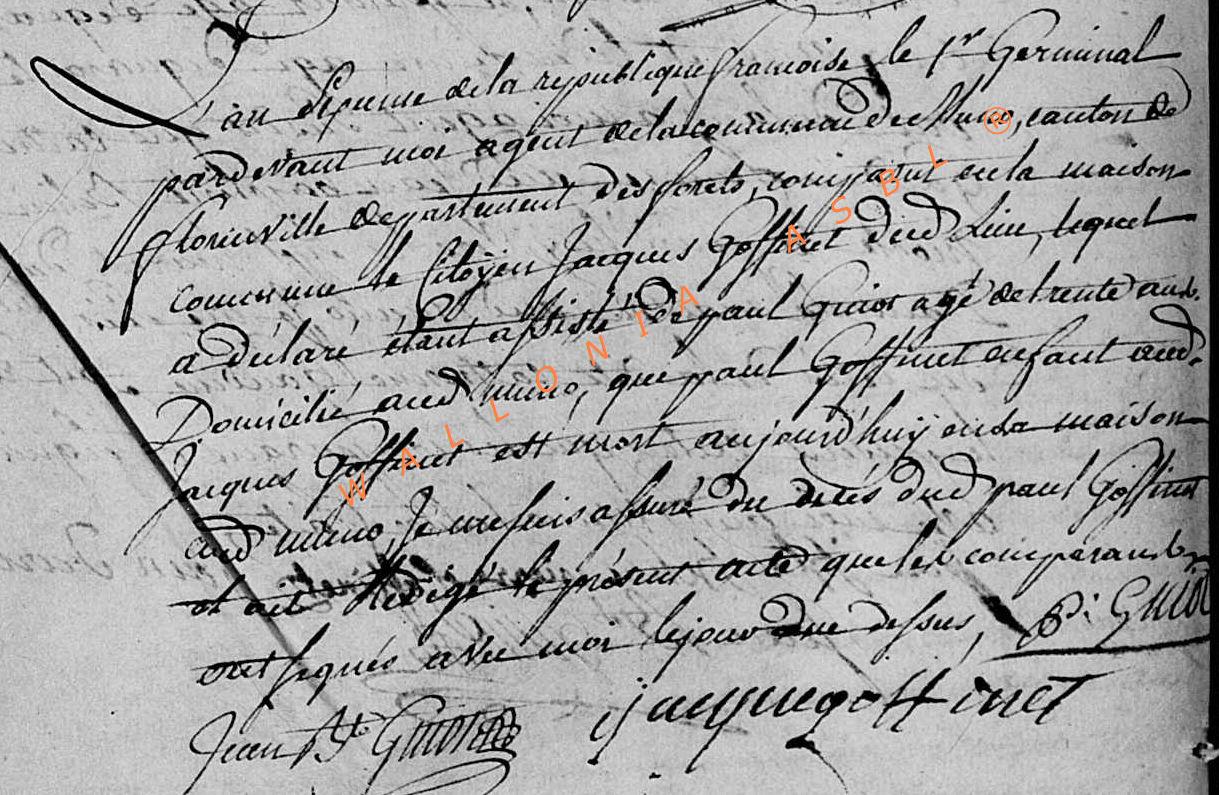 L'an Septieme de la republique francoise le 1er Germinal
pardevant moi agent de la commune de Muno, canton de
florenville departement des forets, comparut en la maison
commune le Citoyen Jacques Goffinet dud lieu, lequel
a déclaré étant assisté de paul Guiot agé de trente ans
Domicilié aud muno, que paul Goffinet enfant aud
Jacques Goffinet est mort aujourd'huy en sa maison
aud muno Je me suis assuré du decés dud paul Goffinet
et ait Redigé le présent acte que les comparants
ont signés avec moi lejour que dessus, P: Guiot
Jean Bte Guiot jacque goffinet
WALLONIA ASBL ®